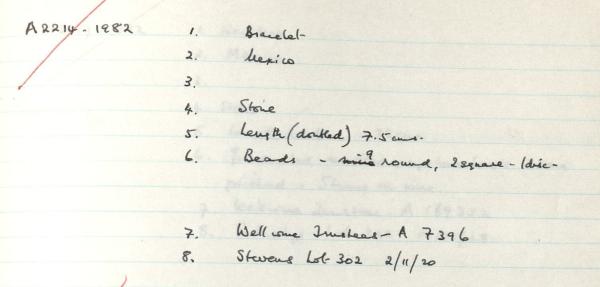 A2214-1982 1. Bracelet
2. Mexico
3.
4. Stone
5. Length (doubled) 7.5cms.
6. Beads - 9 round, 2 square - 1 disc -
7. Wellcome Trustees - A 7396
8. Stevens Lot 302 2/11/20